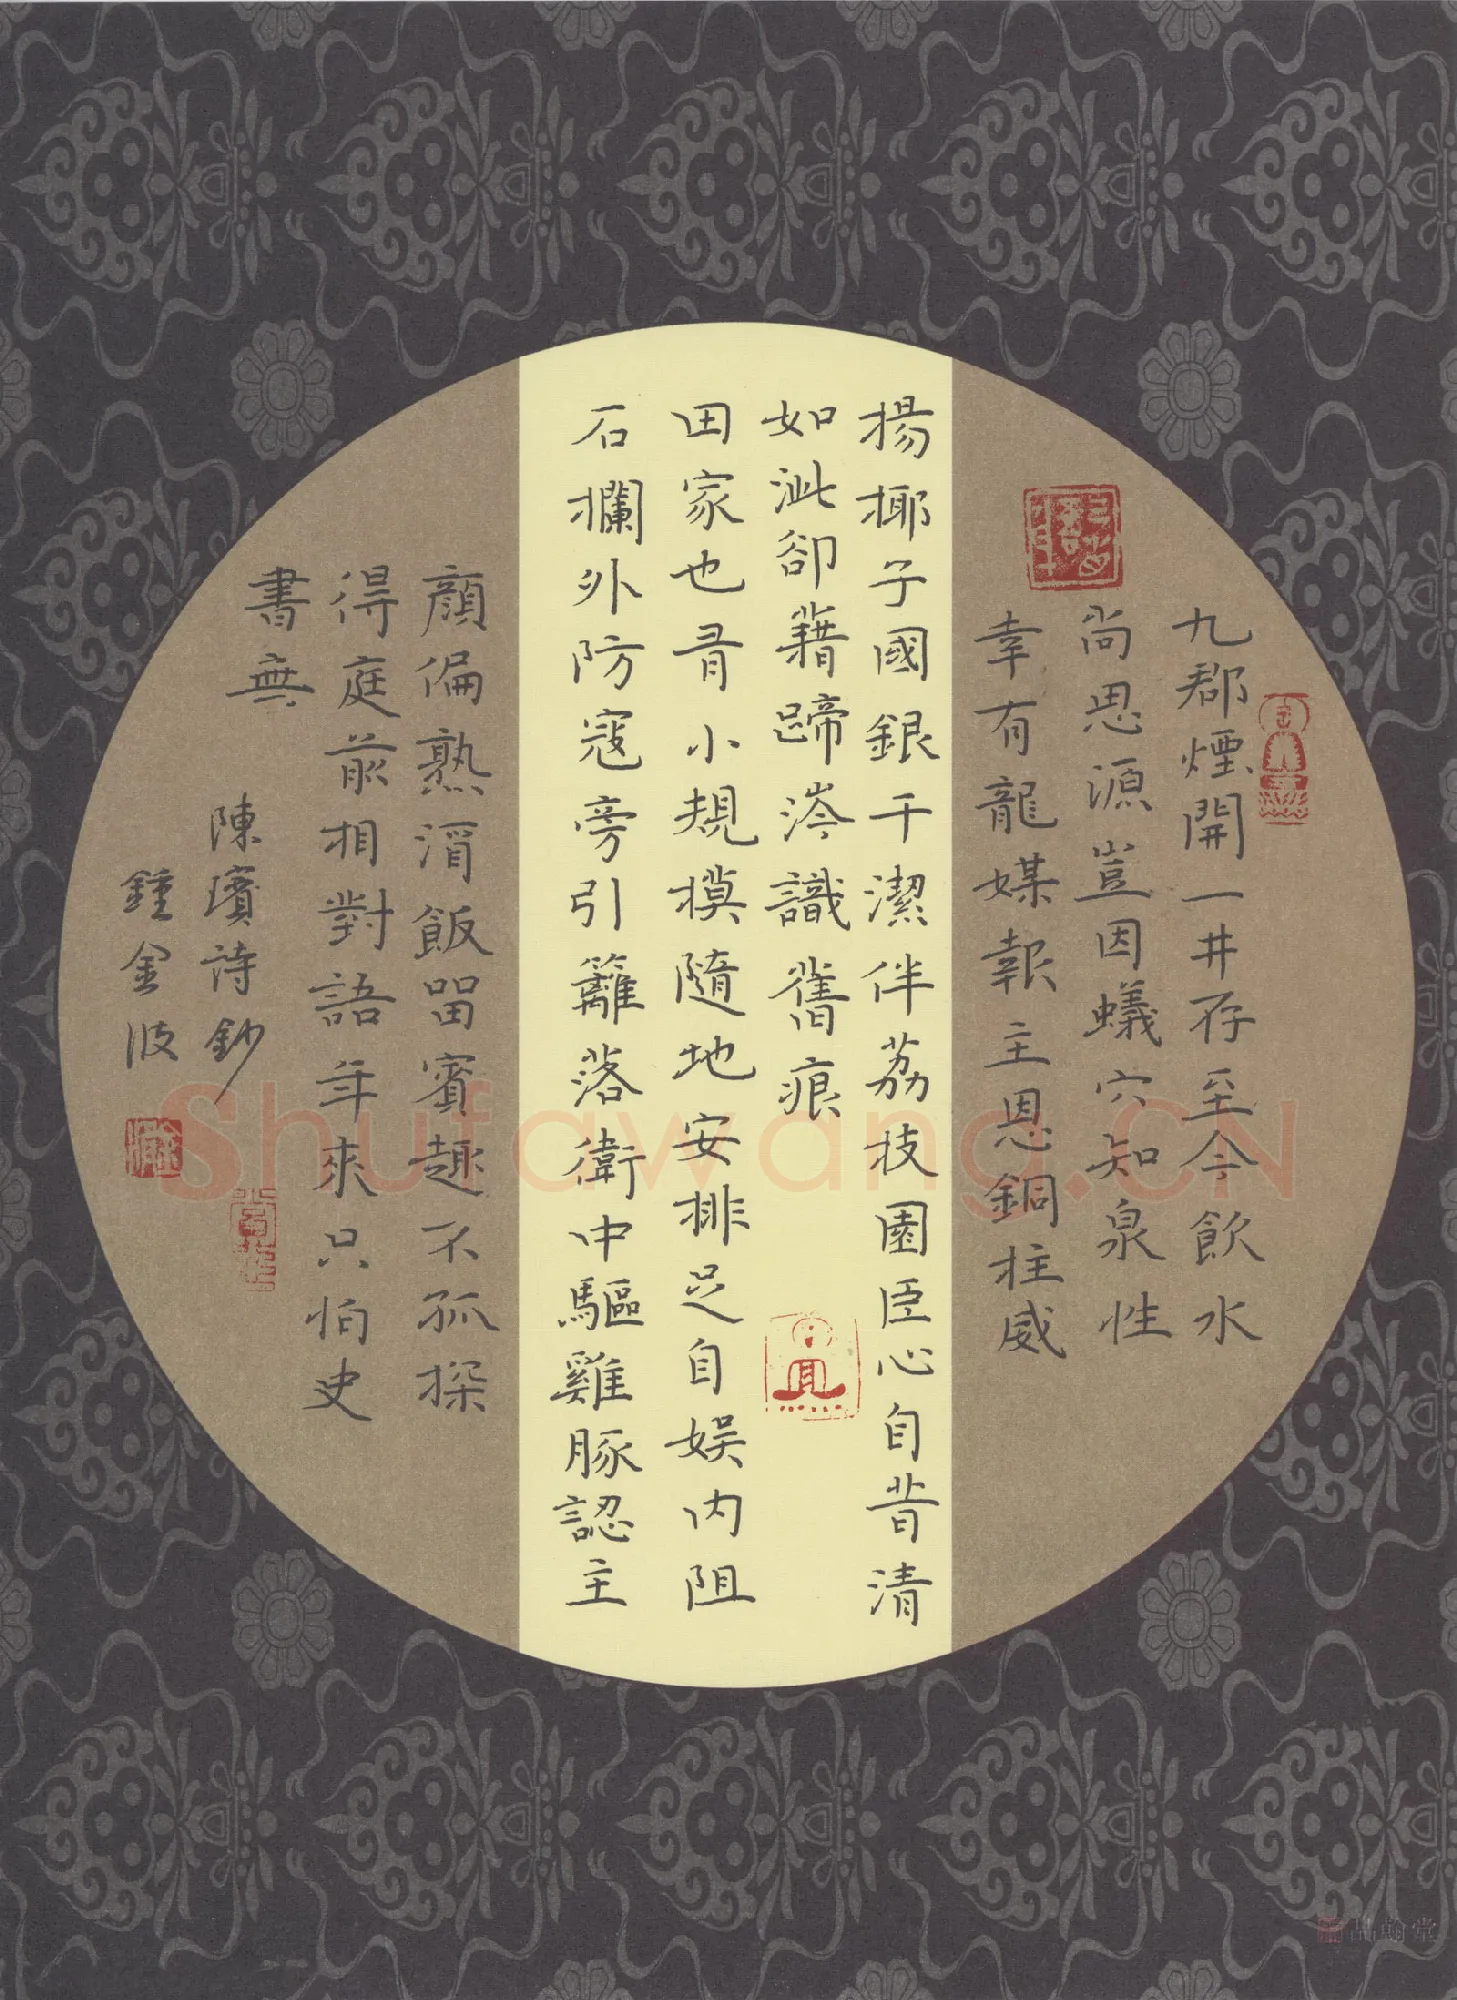 九郡煙開一井存至今飲水
尚思源豈因蟻穴知泉性
幸有龍媒報主恩銅柱威
揚椰子國銀千潔伴荔枝園臣心自昔清
如泚卻藉蹄涔識舊痕
田家也有小規模隨地安排足自娱内阻
石欄外防寇旁引籬落衛中驅雞豚認主
顏偏熟酒飯留賓趣不孤探
得庭前相對語年來只怕史
書無
陳璸詩鈔
鍾金波
Shufawang.CN
品翰堂